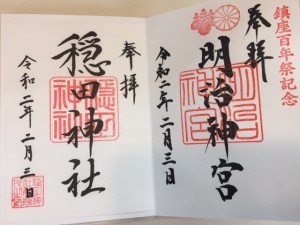 鎮座百年祭記念
奉拝
明治神宮
令和二年二月三日
奉拝
穏田神社
令和二年二月三日